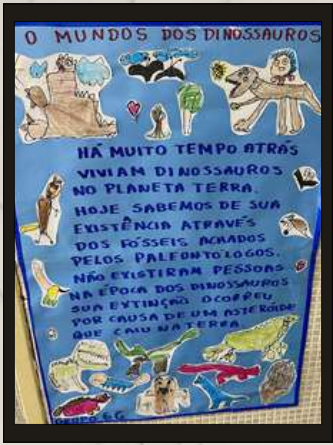 O MUNDOS DOS DINOSSAUROS
HÁ MUITO TEMPO ATRÁS
VIVIAM DINOSSAUROS
NO PLANETA TERRA.
HOJE SABEMOS DE SUA
EXISTÊNCIA ATRAVÉS
DOS FÓSSEIS ACHADOS
PELOS PALEONTÓLOGOS.
NÃO EXISTIRAM PESSOAS
NA ÉPOCA DOS DINOSSAUROS
SUA EXTINÇÃO OCORREU
POR CAUSA DE UM ASTERÓIDE
QUE CAIU NA TERRA.
GRUPO 6G